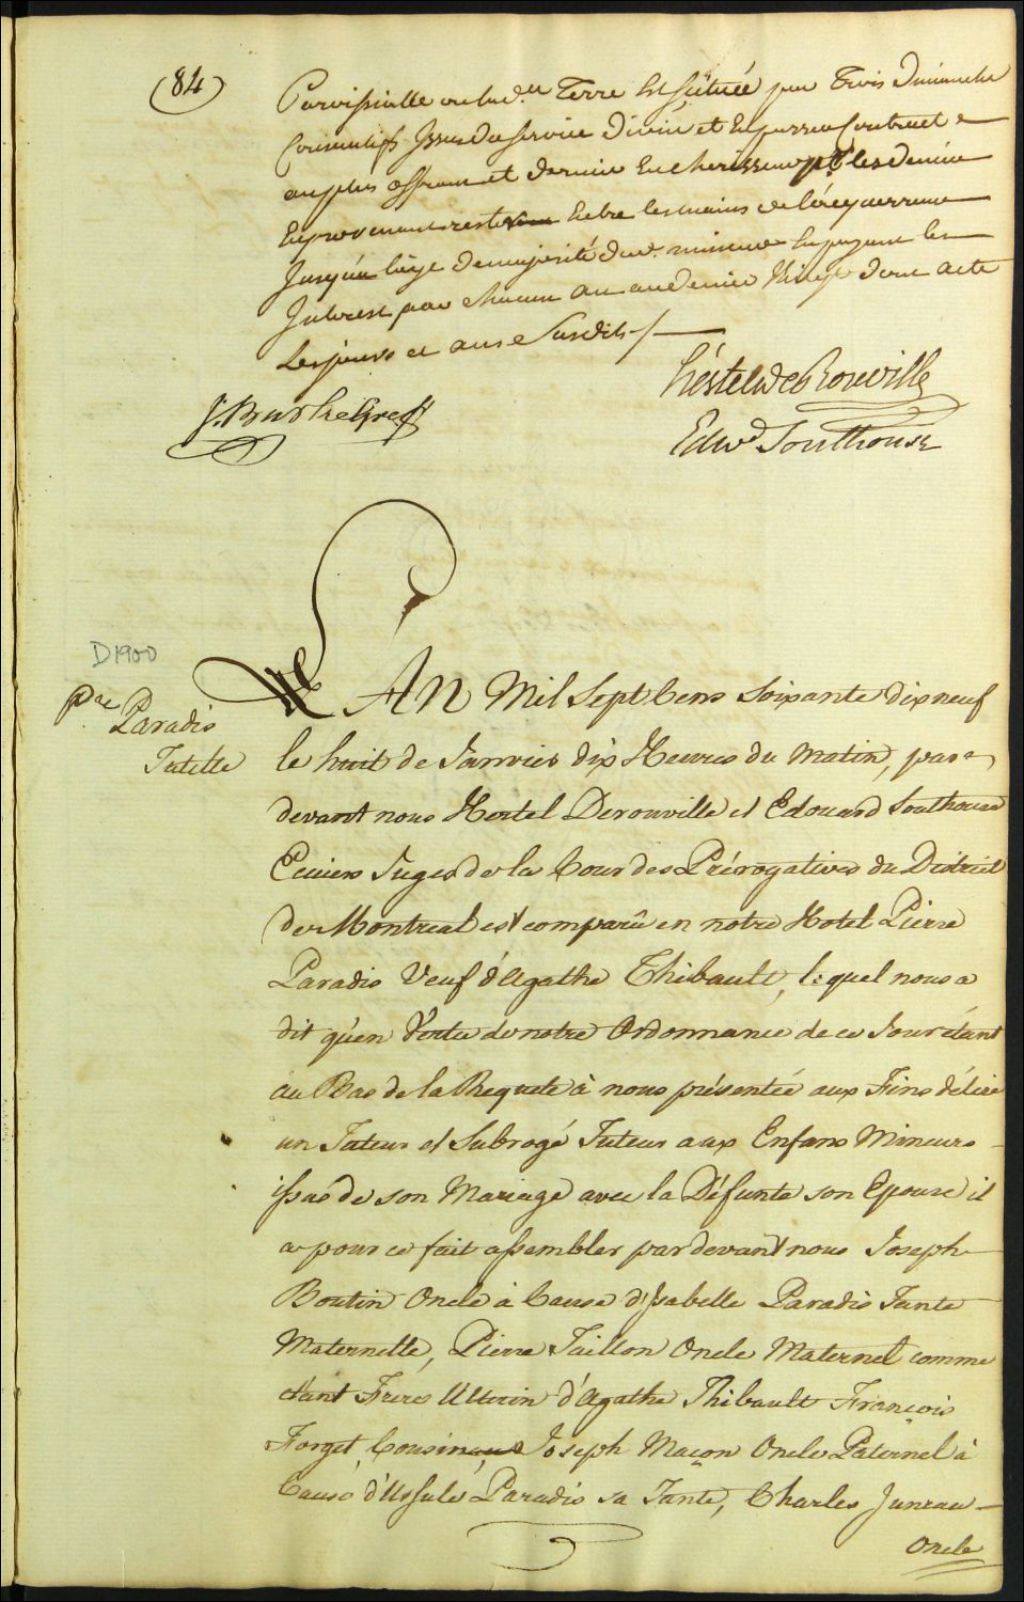 (84)
Paroissialle ou lad.te Terre Est située par Trois Dimanche
Consecutifs Issue du Service Divin et En passera Contract
au plus offrant et dernier Encherisseur pr. les deniers
En provenant rester Entre les mains de
Jusqu'en l'age de majorité dud. mineur En payant les
Interest par chacun an au denier Vingt dont acte
Les jours et an Susdits /
Hertel De Rouville
J. Burke Greff
Edwd Southouse
D1900
L'An Mil Sept Cens Soixante dix neuf
Pre
Paradis
Tutelle
le huit de Janvier dix Heures du Matin, par
devant nous Hertel Derouville et Edouard Southouse
Ecuiers Juges de la Cour des Prérogatives du District
de Montreal est comparû en notre Hotel Pierre
Paradis Veuf d'Agathe Thibault, lequel nous a
dit qu'en Vertu de notre Ordonnance de ce Jour étant
au Bas de la Requete à nous présentée aux Fins délire
un Tuteur et Subrogé Tuteur aux Enfans Mineurs
issus de son Mariage avec la Défunte son Epouse il
a pour ce fait assembler pardevant nous Joseph
Boutin Oncle à Cause d'Isabelle Paradis Tante
Maternelle, Pierre Taillon Oncle Maternel comme
étant Frere Uterin d'Agathe Thibault François
Forget, Cousin Joseph Maçon Oncle Paternel à
Cause d'Ursule Paradis sa Tante, Charles Juneau
Oncle